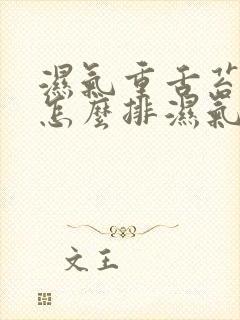 濕氣重舌苔
怎麼排濕氣
文王